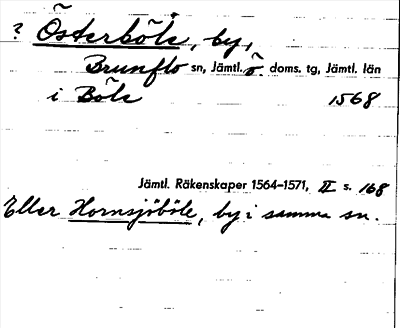 ? Österböle, by,
Brunflo sn, Jämtl. ö doms. tg, Jämtl. län
i Böle 1568
Jämtl. Räkenskaper 1564–1571, II s. 168
Eller Hornsjöböle, by i samma sn.